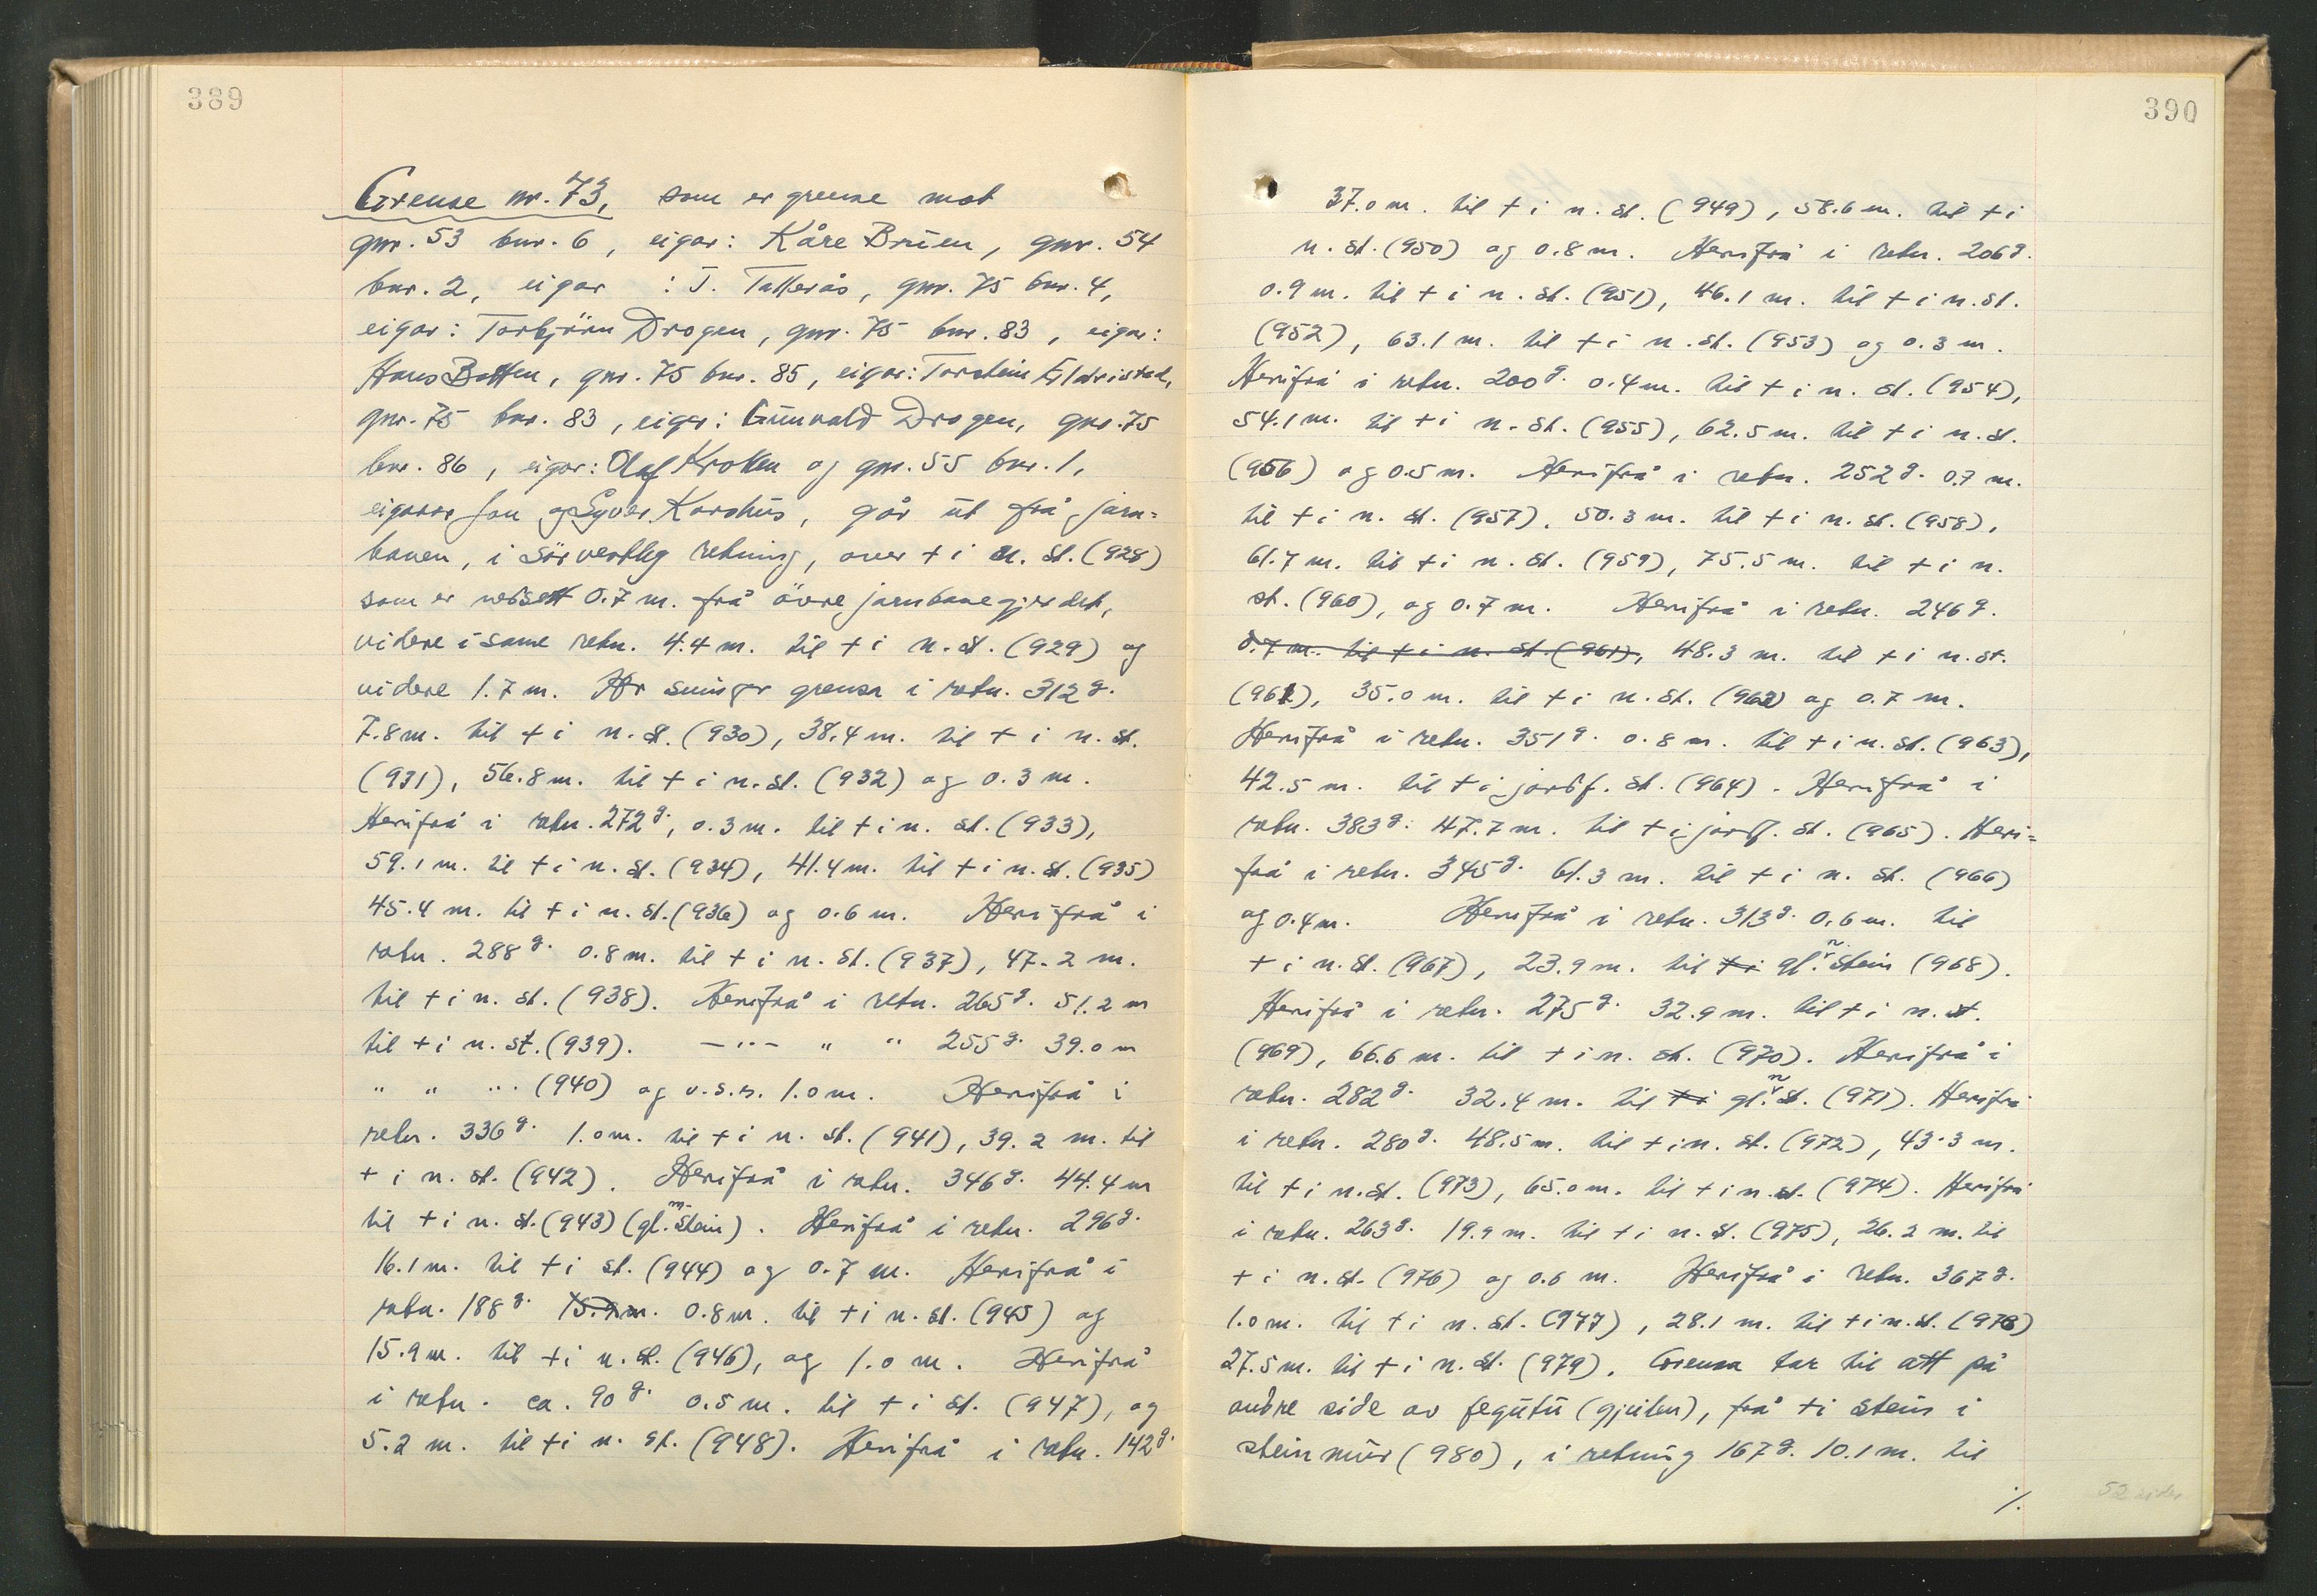 389
Grense nr. 73, som er grense mot
gnr. 53 bnr. 6, eigar: Kåre Bruen, gnr. 54
bnr. 2, eigar : J. Tallerås, gnr. 75 bnr. 4,
eigar: Torbjörn Drogen, gnr. 75 bnr. 83, eigar:
Hans Botten, gnr. 75 bnr. 85, eigar: Torstein
gnr. 75 bnr. 83, eigar: Gunvald Drogen, gnr. 75
bnr. 86, eigar: Olaf Krokken og gnr. 55 bnr. 1,
eigarar Jon og Syver Korshus, går ut frå jarn=
banen, i sörvestleg retning, over + i n. st. (928)
som er nedsett 0.7 m. frå övre jarnbanegjerdet,
videre i same retn. 4.4 m. til + i n. st. (929) og
videre 1.7 m. Her svinger grensa i retn. 312 g.
7.8 m. til + i n. st. (930), 38.4 m. til + i n. st.
(931), 56.8 m. til + i n. st. (932) og 0.3 m.
Herifrå i retn. 272 g., 0.3 m. til + i n. st. (933),
59.1 m. til + i n. st. (934), 41.4 m. til + i n. st. (935)
45.4 m. til + i n. st. (936) og 0.6 m. Herifrå i
retn. 288 g. 0.8 m. til + i n. st. (937), 47.2 m.
til + i n. st. (938). Herifrå i retn. 265 g. 51.2 m
til + i n. st. (939). — " — " " 255 g. 39.0 m
" " " (940) og v.s.r. 1.0 m. Herifrå i
retn. 336 g. 1.0 m. til + i n. st. (941), 39.2 m. til
+ i n. st. (942). Herifrå i retn. 346 g. 44.4 m
til + i n. st. (943) (gl. m. stein). Herifrå i retn. 296 g.
16.1 m. til + i st. (944) og 0.7 m. Herifrå i
retn. 188 g. 15.9 m. 0.8 m. til + i n. st. (945) og
15.9 m. til + i n. st. (946), og 1.0 m. Herifrå
i retn. ca. 90 g. 0.5 m. til + i st. (947), og
5.2 m. til + i n. st. (948). Herifrå i retn. 142 g.
390
37.0 m. til + i n. st. (949), 58.6 m. til + i
n. st. (950) og 0.8 m. Herifrå i retn. 206 g.
0.9 m. til + i n. st. (951), 46.1 m. til + i n. st.
(952), 63.1 m. til + i n. st. (953) og 0.3 m.
Herifrå i retn. 200 g. 0.4 m. til + i n. st. (954),
54.1 m. til + i n. st. (955), 62.5 m. til + i n. st.
(956) og 0.5 m. Herifrå i retn. 252 g. 0.7 m.
til + i n. st. (957). 50.3 m. til + i n. st. (958),
61.7 m. til + i n. st. (959), 75.5 m. til + i n.
st. (960), og 0.7 m. Herifrå i retn. 246 g.
0.7 m. til + i n. st. (961), 48.3 m. til + i n. st.
(961), 35.0 m. til + i n. st. (962) og 0.7 m.
Herifrå i retn. 351 g. 0.8 m. til + i n. st. (963),
42.5 m. til + i jordf. st. (964). Herifrå i
retn. 383 g. 47.7 m. til + i jordf. st. (965). Heri=
frå i retn. 345 g. 61.3 m. til + i n. st. (966)
og 0.4 m. Herifrå i retn. 313 g. 0.6 m. til
+ i n. st. (967), 23.9 m. til + i gl. n. stein (968).
Herifrå i retn. 275 g. 32.9 m. til + i n. st.
(969), 66.6 m. til + i n. st. (970). Herifrå i
retn. 282 g. 32.4 m. til + i gl. n. st. (971). Herifrå
i retn. 280 g. 48.5 m. til + i n. st. (972), 43.3 m.
til + i n. st. (973), 65.0 m. til + i n. st. (974). Herifrå
i retn. 263 g. 19.9 m. til + i n. st. (975), 26.2 m. til
+ i n. st. (976) og 0.6 m. Herifrå i retn. 367 g.
1.0 m. til + i n. st. (977), 28.1 m. til + i n. st. (978)
27.5 m. til + i n. st. (979). Grensa tar til att på
andre side av fegutu (gjeilen), frå + i stein i
steinmur (980), i retning 167 g. 10.1 m. til
./.
52 sider